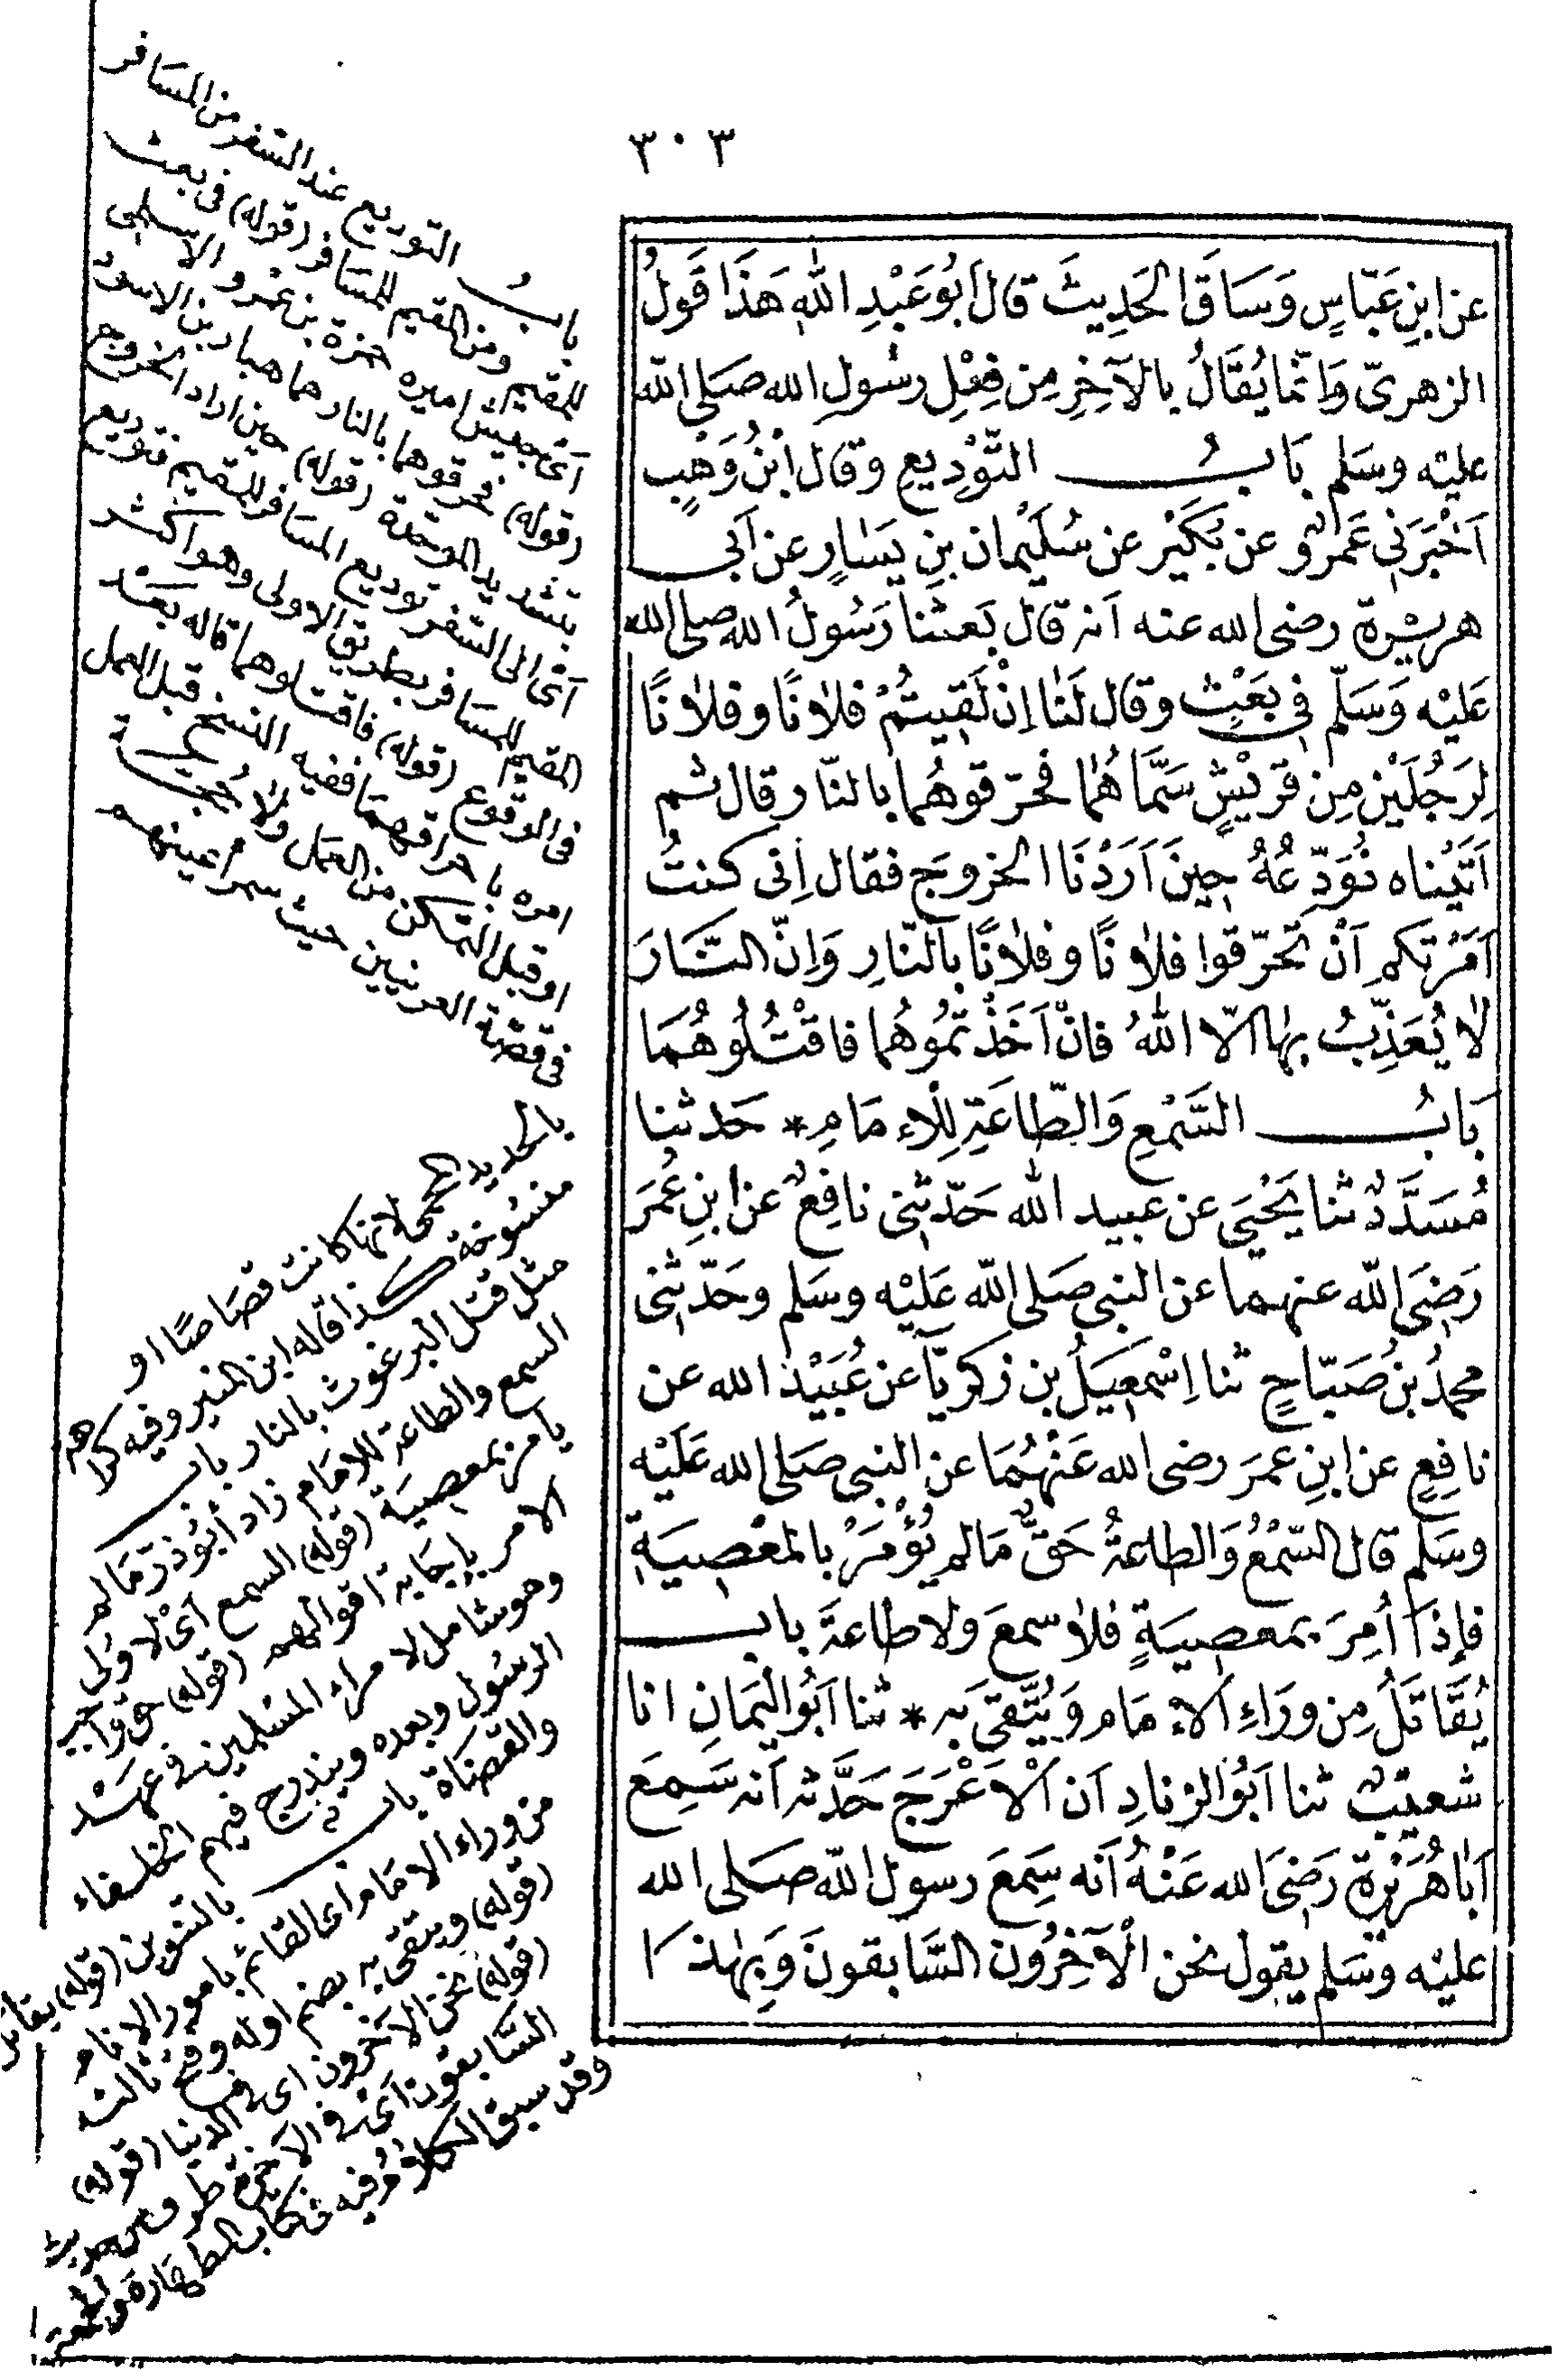 ٣٠٣
عن ابنِ عَبّاسٍ وَسَاقَ الحَدِيثَ قال اَبُو عَبْدِ اللهِ هَذَا قَولُ
الزهرىّ وَاِنّمَا يُقَالُ بالآخِرِ مِن فِعْلِ رسُولِ الله صَلى الله
عليْه وسَلم بَابُ التَّوْدِيعِ وقال ابْنُ وَهْبٍ
اَخْبَرَنِى عَمرٌو عن بُكَيْرٍ عن سُلَيْمان بنِ يَسَارٍ عن اَبى
هريْرة رضى الله عنه انه قال بَعثنا رَسُولُ الله صلى الله
عَليْه وَسَلّم فى بَعْثٍ وقال لَنَا اِنْ لَقِيتُمْ فلانًا وفلانًا
لِرَجُلَيْنِ مِن قريْشٍ سَمَّاهُمَا فحَرّقوهُما بالنّار قال ثم
اَتَيْناه نُوَدّعُهُ حِينَ اَرَدْنَا الخروجَ فقال اِنى كنتُ
اَمَرْتكم اَنْ تحَرّقوا فلانًا وفلانًا بالنّارِ وَاِنّ النَّارَ
لا يُعَذِّبُ بِهَا الّا اللهُ فانْ اَخَذْتمُوهُما فاقْتُلُوهُمَا
بَابُ السَّمْعِ وَالطّاعَةِ لِلْاِمَامِ * حَدثنا
مُسَدَّدٌ ثنا يَحْيَى عن عبيد الله حَدّثنِى نافِعٌ عن ابنِ عُمَرَ
رَضِىَ الله عنهما عن النبى صَلى الله عَليْه وسَلم وحَدّثنِى
محمدُ بنُ صَبّاحٍ ثنا اِسْمعِيلُ بن زكريّا عن عُبَيْدِ الله عن
نافِعٍ عن ابنِ عمرَ رضى الله عَنْهُمَا عن النبى صَلى الله عَلَيْه
وسَلم قال السّمْعُ وَالطاعَةُ حَقٌّ مَا لم يُؤْمَرْ بالمَعْصِيَةِ
فإذَا اُمِرَ بمعصِيَةٍ فلا سمعَ ولا طاعَةَ باب
يُقَاتَلُ مِن ورَاءِ الاِمَامِ وَيُتَّقىَ بِه * ثنا اَبُو اليَمَانِ انا
شعيْبٌ ثنا اَبُو الزنادِ اَن الاَعْرَجَ حَدَّثه اَنه سَمِعَ
اَبَا هُرَيْرة رَضِىَ الله عَنْهُ اَنه سَمِعَ رسول الله صَلى الله
عليْه وسَلم يقول نحن الْآخِرُون السَّابقونَ وَبِهٰذَا
باب التوديع عند السّفر من المسَافر
للمقيم ومن المقيم للمسَافر (قوله) فى بعث
اَى جيش اميره حمزة بن عمرو الاسلمى
(قوله) فحرقوهما بالنار هما هبار بن الاسود
بتشديد الموحدة (قوله) حين اراد الخروج
اَى الى السّفر توديع المسَافر للمقيم فتوديع
المقيم للمسَافر بطريق الاولى وهو اكثر
فى الوقوع (قوله) فاقتلوهما قاله بعد
امره باحراقهمَا ففيه النسخ قبل العمل
او قبل التمكن من العمل ولا
فى قصّة العرنيين حيث سمر اعينهم
بالحديد المحمى لانها كانت قصَاصًا او
منسُوخة كذا قاله ابن المنير وفيه كراهة
مثل قتل البرغوث بالنار باب
السمع والطاعة للامَام زاد أبوُ ذر مَا لم
يامر بمعصِيَة (قوله) السمع اَىْ لاولى
الامر بإجَابة اقوالهم (قوله) حق واجب
وهو شامل لامراء المسْلمين فى عهْد
الرسُول وبعده ويندرج فيهم الخلفاء
والقضاة باب بالتنوين (قوله) يقاتل
من وراء الامَام اى القائم بامور الانام
(قوله) ويتقى به بضم اوله وفتح ثالثه
(قوله) نحن الآخرون اى فى الدنيا (قوله)
السّابقون اَى فى الآخرة طرف من حديث
وقد سبق الكلامُ فيه فى كتاب الطهَارة والجمعة